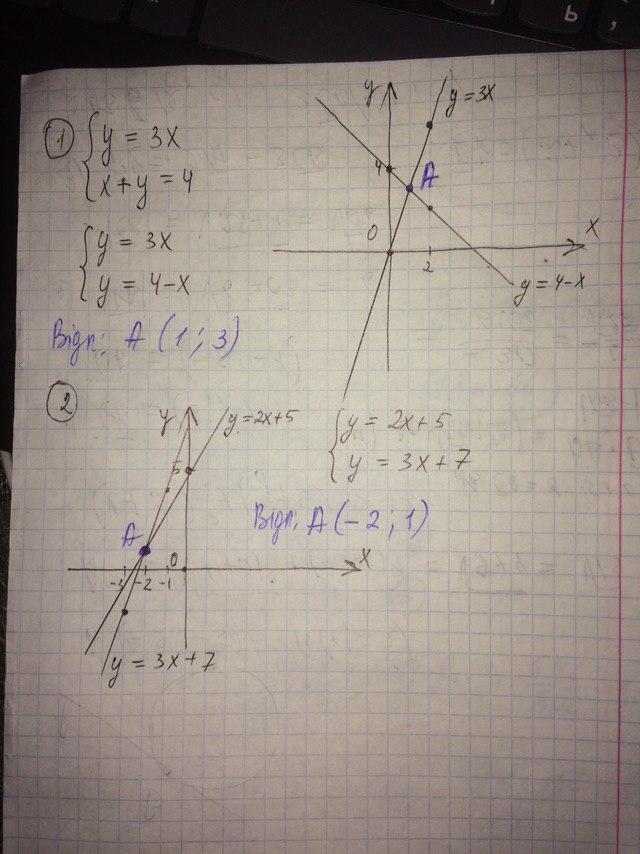 1
y = 3x
x+y = 4
y = 3x
y = 4-x
Відп: A (1; 3)
y
y=3x
4
A
0
2
x
y=4-x
2
y
y=2x+5
5
A
0
-3 -2 -1
x
y = 3x+7
y = 2x+5
y = 3x+7
Відп: A (-2; 1)